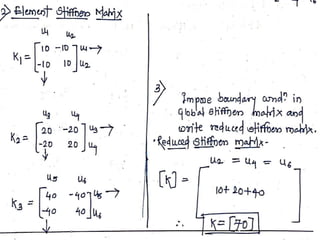 2) Element Stiffness Matrix
u1 u2
K1 = [10 -10] u1 →
[-10 10] u2
↓
u3 u4
K2 = [20 -20] u3 →
[-20 20] u4
↓
u5 u6
K3 = [40 -40] u5 →
[-40 40] u6
↓
3)
Impose boundary condn in
global stiffness matrix and
write reduced stiffness matrix.
• Reduced Stiffness matrix-
u2 = u4 = u6
[K] = [10+20+40]
∴ K=[70]